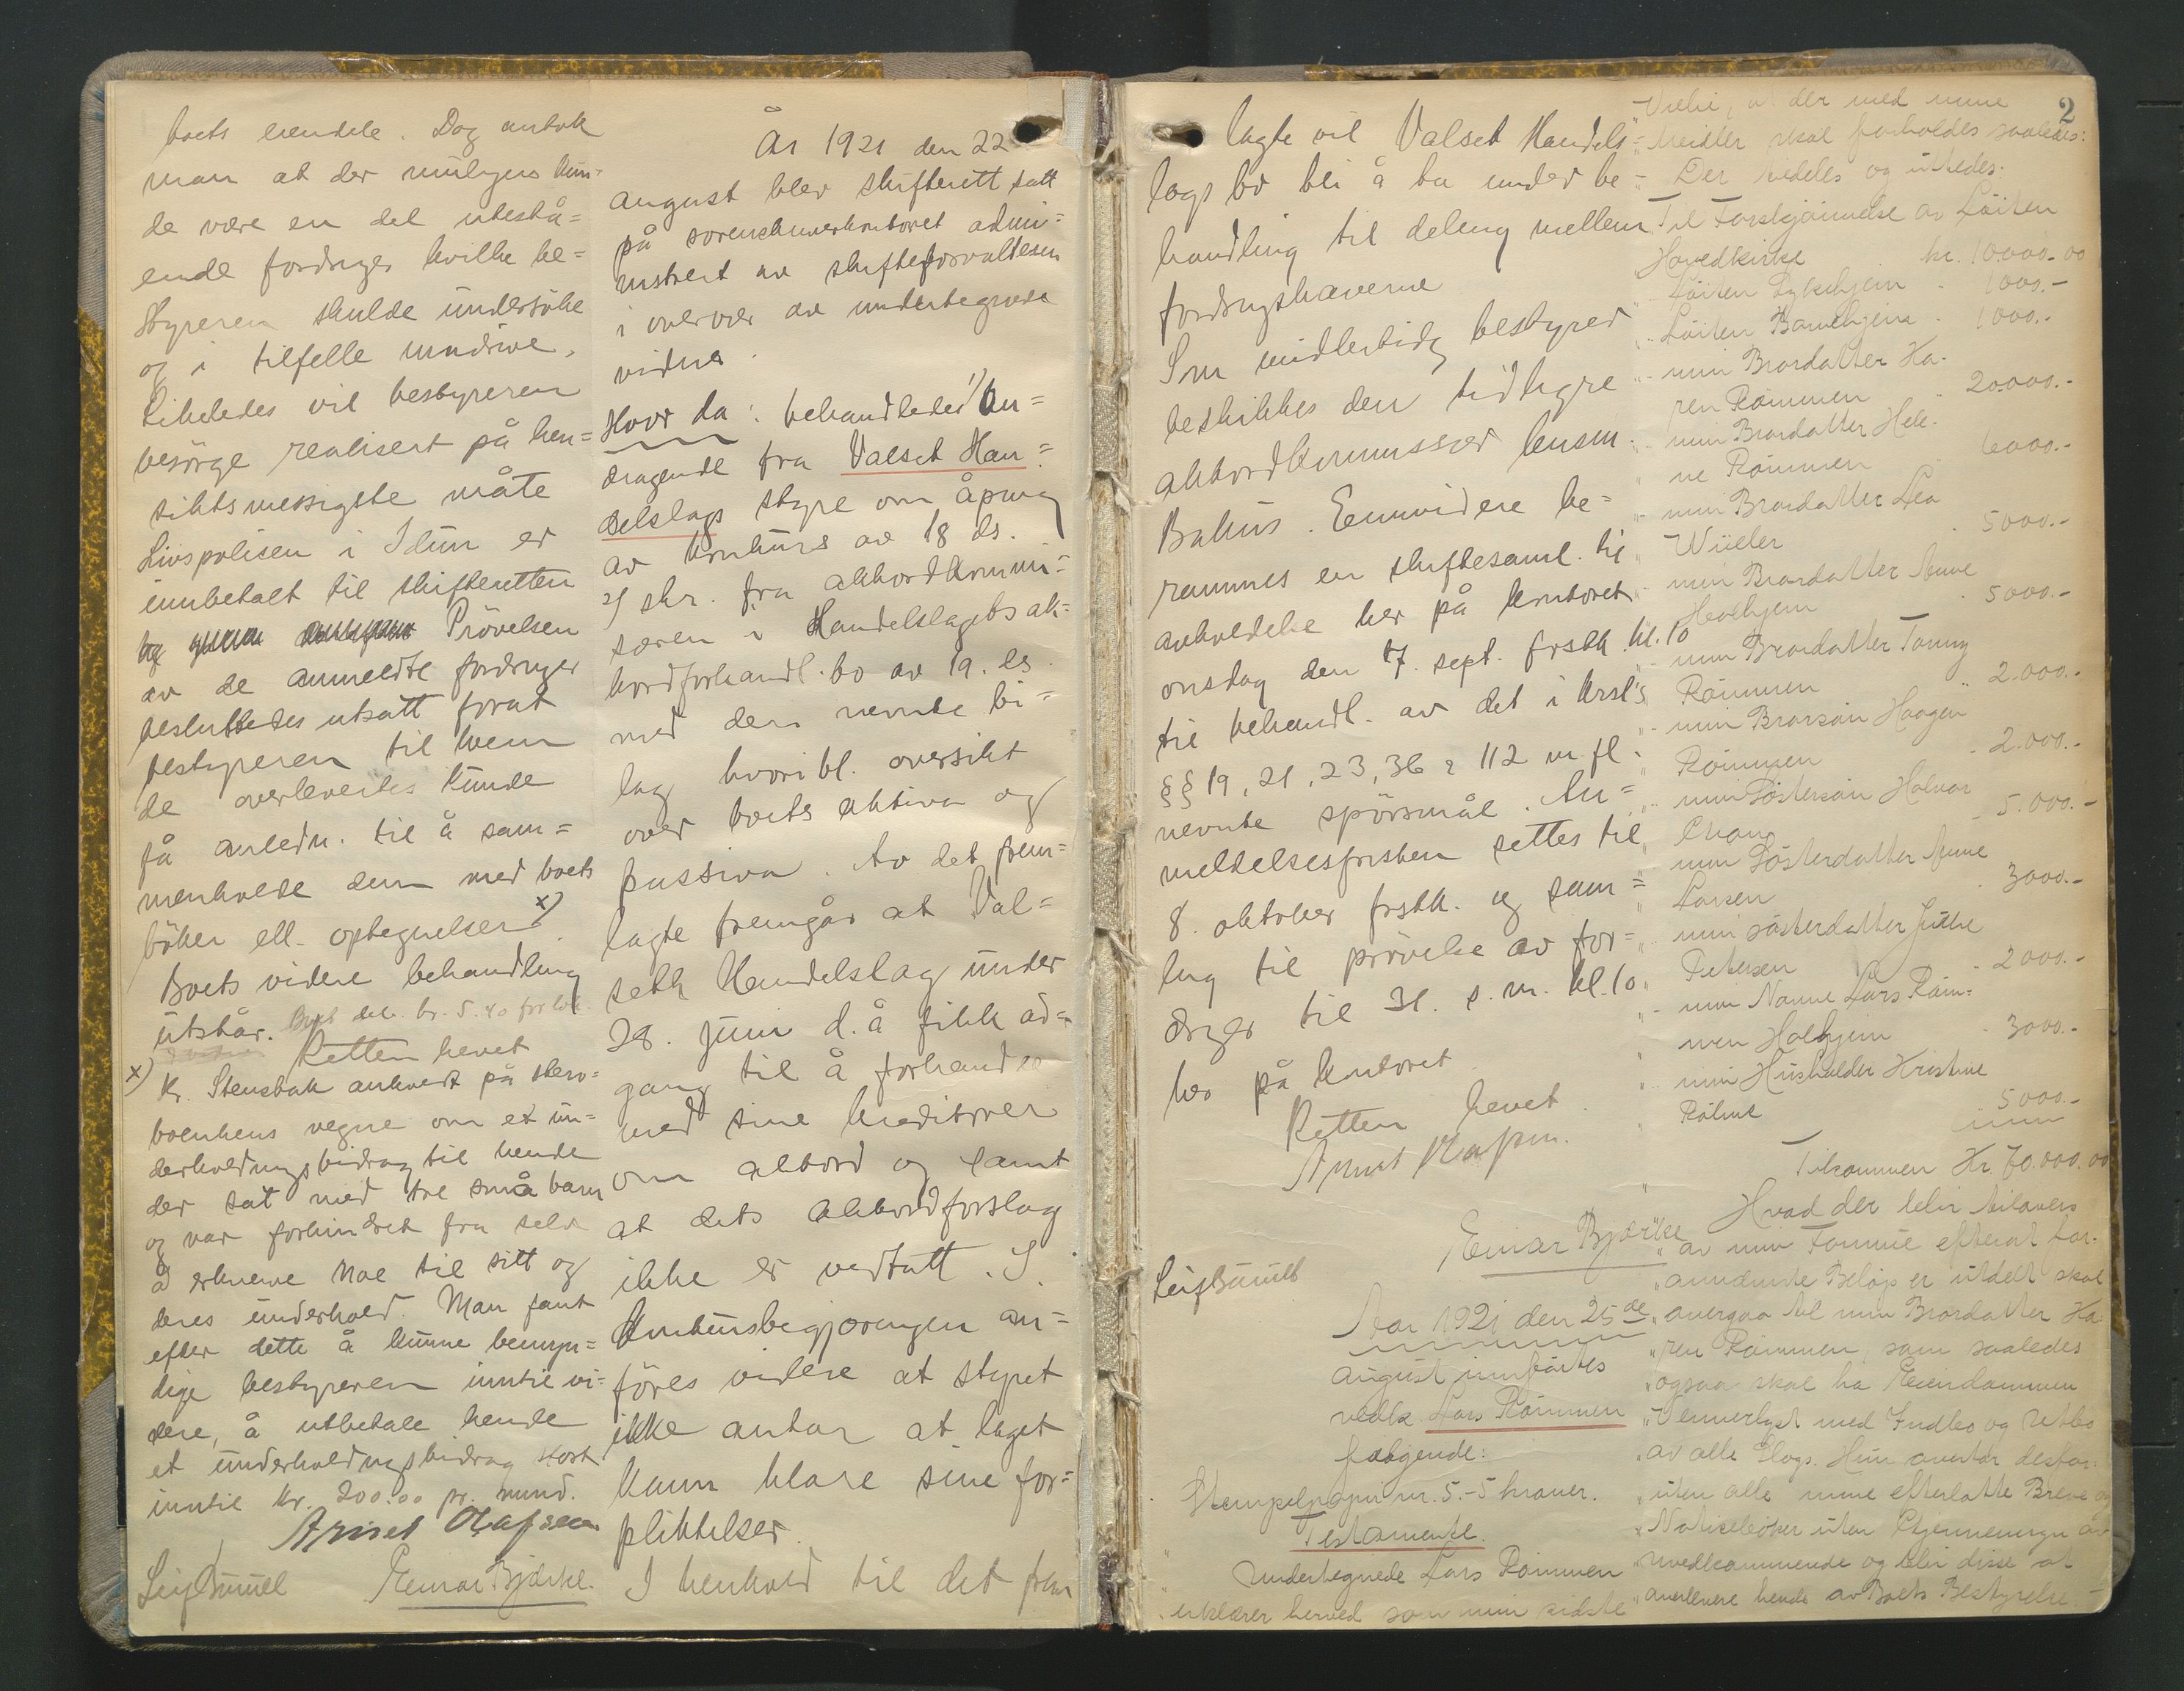 boets eiendele. Dog antok
man at der muligens kun=
de være en del utestå=
ende fordringer hvilke be=
styreren skulde undersöke
og i tilfelle inndrive.
Likeledes vil bestyreren
besörge realisert på hen=
siktsmessigste måte
Livspolisen i Idun er
innbetalt til skifteretten
Prövelsen
av de anmeldte fordringer
besluttedes utsatt forat
bestyreren til hvem
de overleveites kunde
få anledn. til å sam=
menholde dem med boets
böker ell. optegnelser x)
Boets videre behandling
utstår. deb. kr. 5.40
Retten hevet
x) Kr. Stensbak anholdt på
vegne om et un=
derholdningsbidrag til hende
der sat med tre små barn
og var forhindret fra selv
å erhverve noe til sitt og
deres underhold. Man fant
efter dette å kunne bemyn=
dige bestyreren inntil vi=
dere, å utbetale hende
et underholdningsbidrag stort
inntil kr. 200.00 pr. mnd.
Arnet Olafsen
Leif Smull Einar Bjærke.
År 1921 den 22
august blev skifterett satt
på sorenskriverkontoret admi=
nistrert av skifteforvalteren
i overvær av undertegnede
vidner.
Hvor da: behandledes 1) An=
dragende fra Valset Han=
delslags styre om åpning
av konkurs av 18 ds.
2) skr. fra akkordkommi=
særen i Handelslagets ak=
kordforhandl.bo av 19. ds.
med dens nevnte bi=
lag hvori bl. oversikt
over boets aktiva og
passiva. Av det frem=
lagte fremgår at Val=
sett Handelslag under
28. juni d.å fikk ad=
gang til å forhandle
med sine kreditorer
om akkord og samt
at dets akkordforslag
ikke er vedtatt. I
konkursbegjæringen an=
föres videre at styret
ikke antar at laget
kann klare sine for=
pliktelser.
I henhold til det frem
lagte vil Valset Handels=
lags bo bli å ta under be=
handling til deling mellem
fordringshaverne
Som midlertidig bestyrer
beskikkes den tidligre
akkordkommissær lensm.
Bakus. Eenvidere be=
rammes en skiftesaml. til
avholdelse her på kontoret
onsdag den 7. sept. frstk. kl. 10
til behandl. av det i krsl's
§§ 19, 21, 23, 36 & 112 m. fl.
nevnte spörsmål. An=
meldelsesfristen settes til
8. oktober frstk. og sam=
ling til prövelse av for=
dringer til 31. s. m. kl. 10
her på kontoret.
Retten hevet.
Arnet Olafsen.
Einar Bjærke
Leif Smull
Aar 1921 den 25de
august innförtes
vedk Lars Römmen
fölgende:
Stempelpapir nr. 5.-5 kroner.
Testamente.
Undertegnede Lars Römmen
erklærer herved som min sidste
Vilie, at der med mine
Meidler skal forholdes saaledes:
Der uddeles og utredes:
Til Forskjönnelse av Löiten
Hovedkirke kr. 10000.00
Löiten Sykehjem 1000.-
Löiten Barnehjem 1000.-
min Brordatter Ka-
ren Römmen 20000.-
min Brordatter Hele-
ne Römmen 6000.-
min Brordatter Lea
Wüller 5000.-
min Brordatter Anne
5000.-
min Brordatter Tanny
Römmen 2.000.-
min Brorsön Haagen
Römmen 2.000.-
min Söstersön Halvor
5.000.-
min Sösterdatter Anne
Larsen 3000.-
min sösterdatter Juthe
Petersen 2000.-
min Navne Lars Röm=
men 3000.-
min Husholder Kristine
5000.-
Tilsammen Kr. 70.000.00
Hvad der blir tilovers
av min Formue efterat for-
anndenste Belöp er utdelt skal
overgaa til min Brordatter Ka
ren Römmen, som saaledes
ogsaa skal ha Eiendommen
Vennerlyst med Indbo og Utbo
av alle Slags. Hun overtar desfor-
uten alle mine efterlatte Breve og
Notisebøker uten Gjennemsyn av
uvedkommende og blir disse at
overlevere hende av Boets Bestyrelse.
2